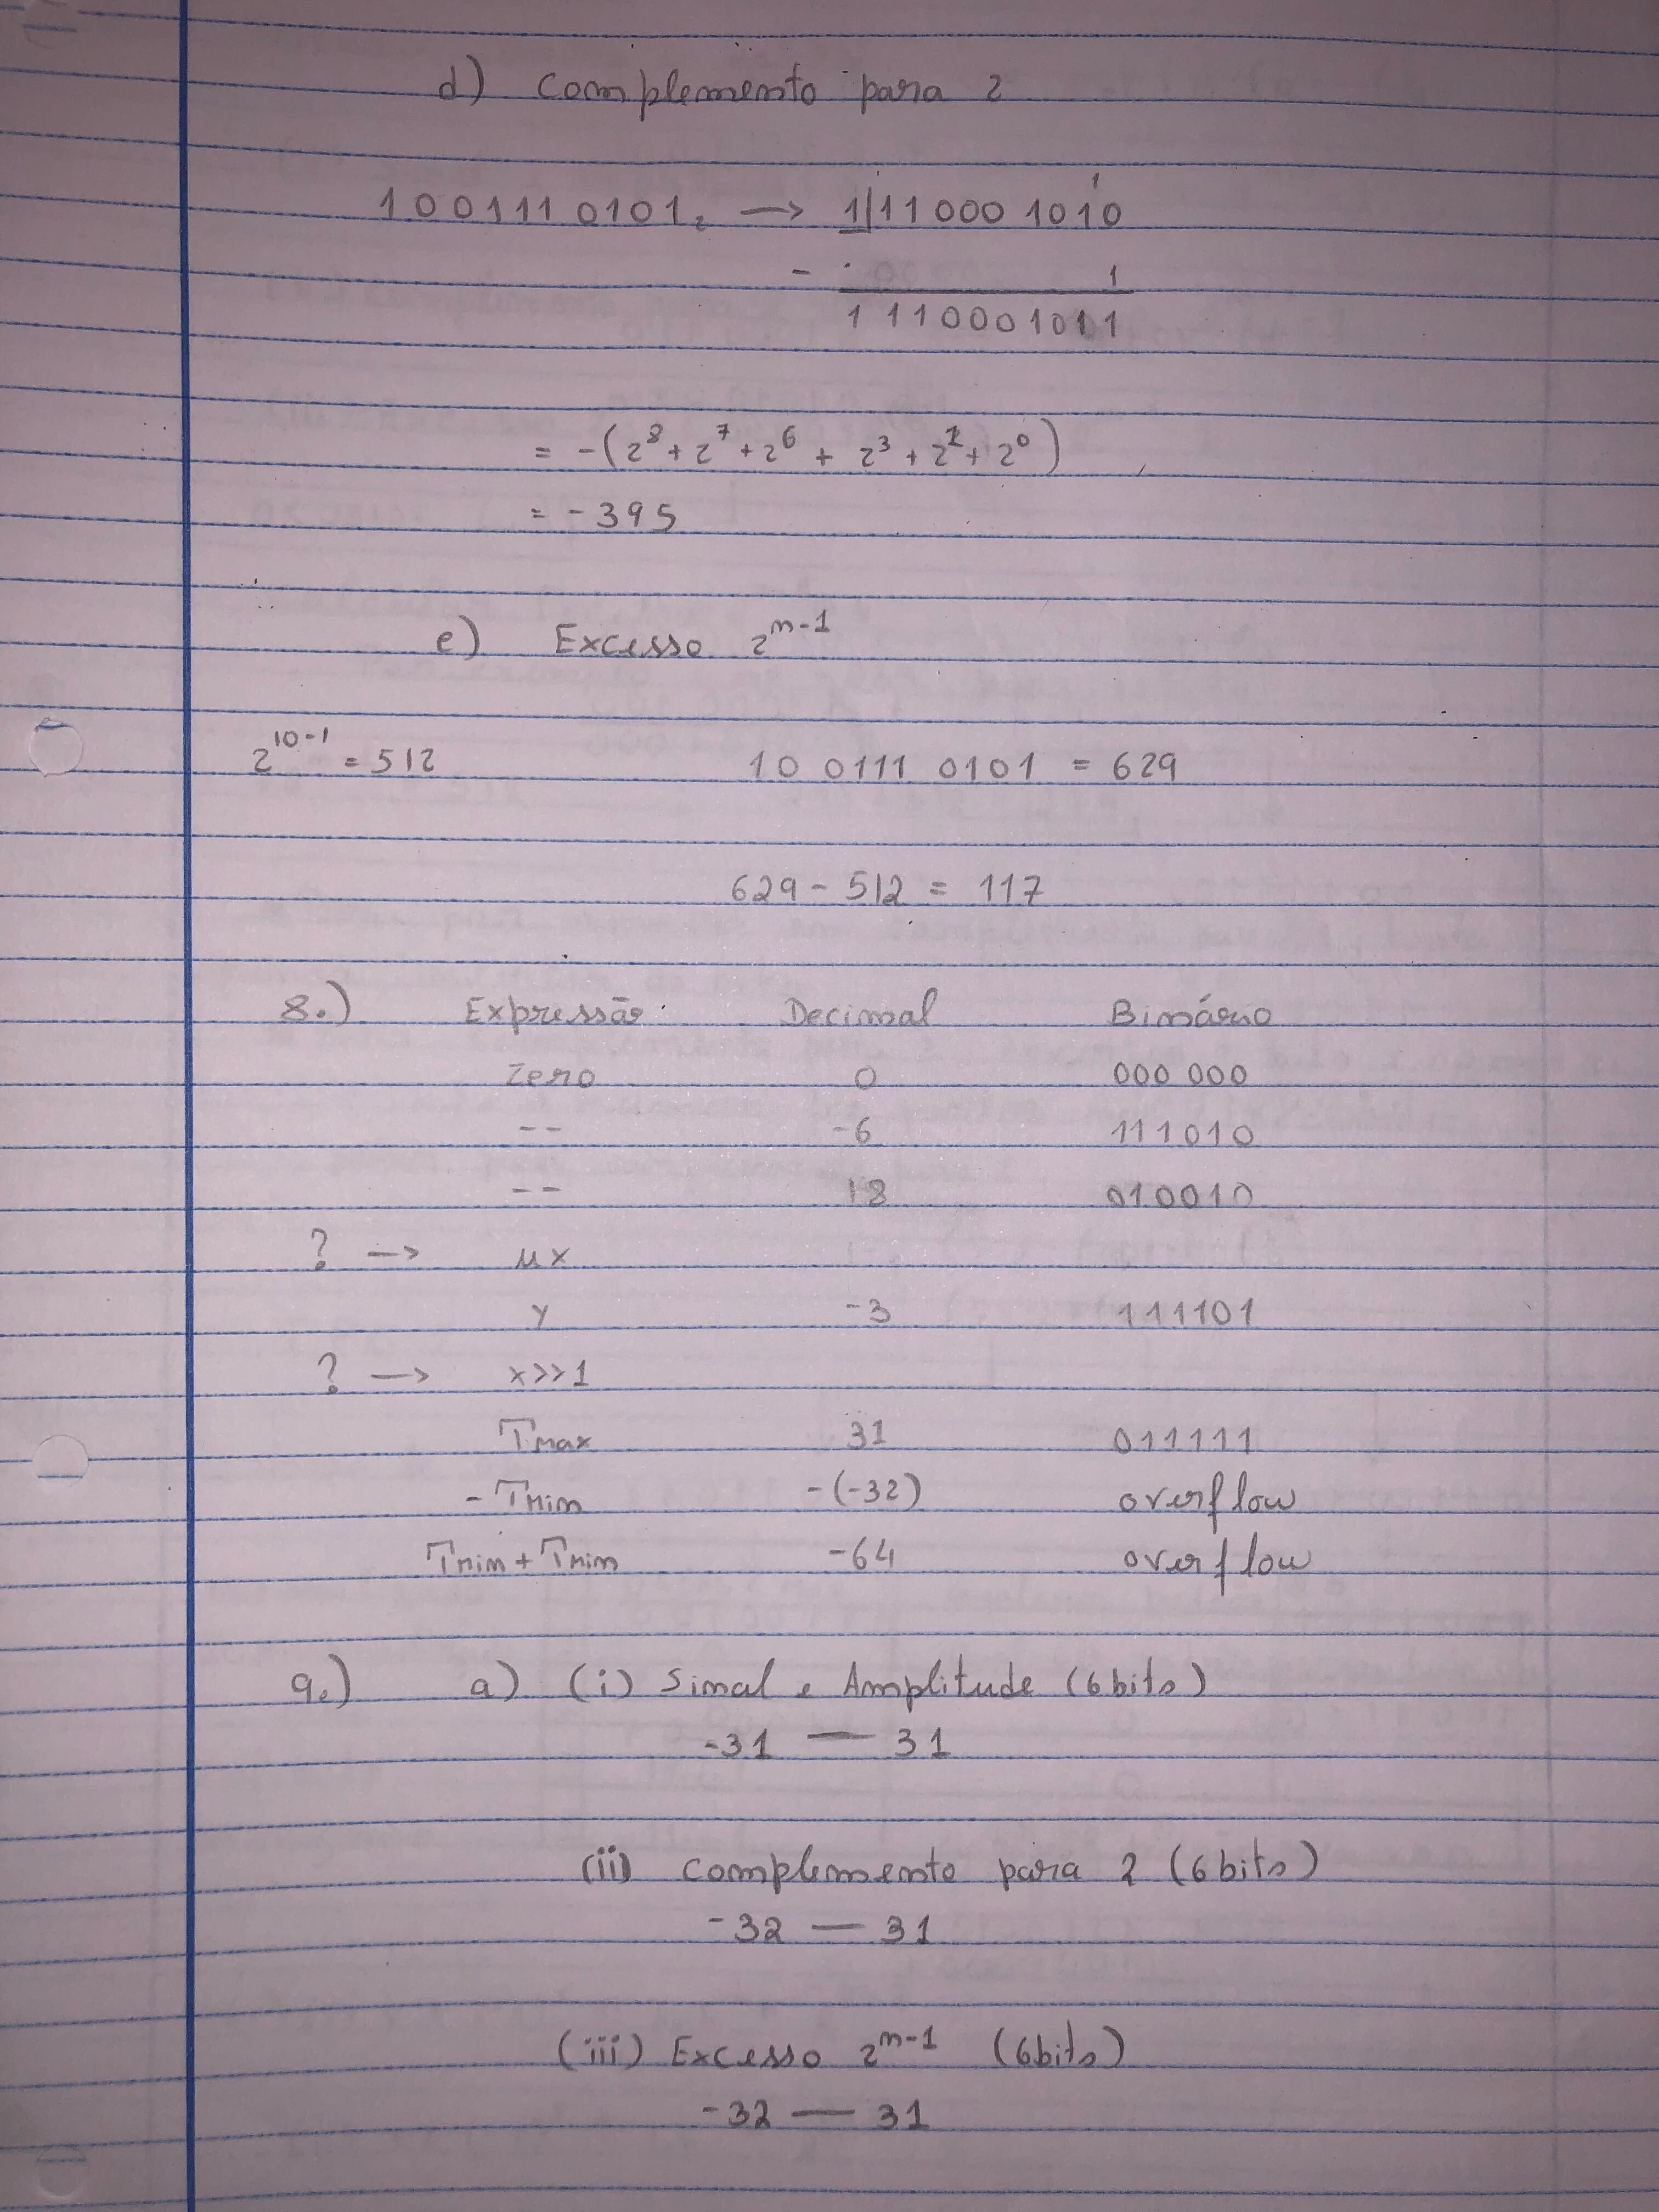 d) Complemento para 2
1001110101₂ → 1|110001010
1
- 1
1110001011
= -(2⁸ + 2⁷ + 2⁶ + 2³ + 2¹ + 2⁰)
= -395
e) Excesso 2ⁿ⁻¹
2¹⁰⁻¹ = 512 10 0111 0101 = 629
629 - 512 = 117
8.) Expressão Decimal Binário
Zero 0 000 000
-- -6 111010
-- 18 010010
? → ux
y -3 111101
? → x>>1
Tmax 31 011111
- Tmin -(-32) overflow
Tmin + Tmin -64 overflow
9.) a) (i) Sinal e Amplitude (6 bits)
-31 — 31
(ii) Complemento para 2 (6 bits)
-32 — 31
(iii) Excesso 2ⁿ⁻¹ (6 bits)
-32 — 31